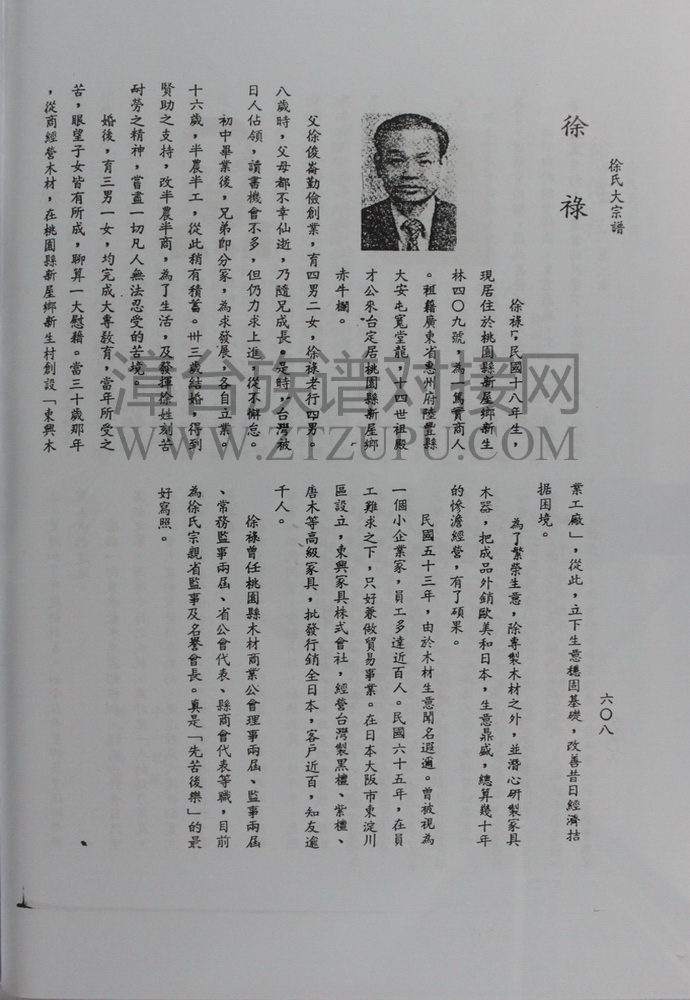 徐氏大宗譜
六〇八
徐祿
徐祿，民國十八年生，
現居住於桃園縣新屋鄉新生
林四〇九號，為一篤實商人
。祖籍廣東省惠州府陸豐縣
大安屯寬堂龍，十四世祖殿
才公來台定居桃園縣新屋鄉
赤牛欄。
父徐俊崙勤儉創業，育四男二女，徐祿老行四男。
八歲時，父母都不幸仙逝，乃隨兄成長。是時，台灣被
日人佔領，讀書機會不多，但仍力求上進，從不懈怠。
初中畢業後，兄弟即分家，為求發展，各自立業。
十六歲，半農半工，從此稍有積蓄。卅三歲結婚，得到
賢助之支持，改半農半商，為了生活，及發揮徐姓刻苦
耐勞之精神，嘗盡一切凡人無法忍受的苦境。
婚後，育三男一女，均完成大專教育，當年所受之
苦，眼望子女皆有所成，聊算一大慰藉。當三十歲那年
，從商經營木材，在桃園縣新屋鄉新生村創設「東興木
業工廠」，從此，立下生意穩固基礎，改善昔日經濟拮
据困境。
為了繁榮生意，除專製木材之外，並潛心研製家具
木器，把成品外銷歐美和日本，生意鼎盛，總算幾十年
的慘澹經營，有了碩果。
民國五十三年，由於木材生意聞名遐邇。曾被視為
一個小企業家，員工多達近百人。民國六十五年，在員
工難求之下，只好兼做貿易事業。在日本大阪市東淀川
區設立，東興家具株式會社，經營台灣製黑檀、紫檀、
唐木等高級家具，批發行銷全日本，客戶近百，知友逾
千人。
徐祿曾任桃園縣木材商業公會理事兩屆、監事兩屆
、常務監事兩屆、省公會代表、縣商會代表等職，目前
為徐氏宗親省監事及名譽會長。真是「先苦後樂」的最
好寫照。
漳台族谱对接网
WWW.ZTZUPU.COM